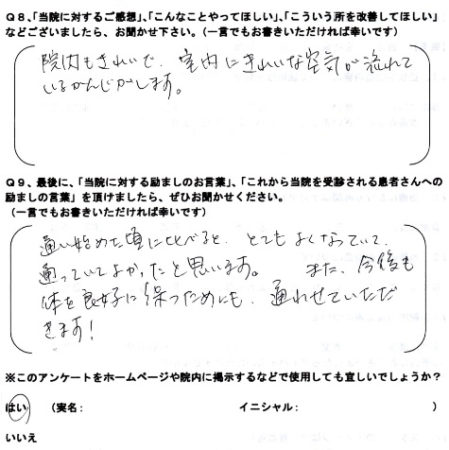 Q8、「当院に対するご感想」、「こんなことやってほしい」、「こういう所を改善してほしい」
などございましたら、お聞かせ下さい。(一言でもお書きいただければ幸いです)
院内もきれいで、室内にきれいな空気が流れて
いるかんじがします。
Q9、最後に、「当院に対する励ましのお言葉」、「これから当院を受診される患者さんへの
励ましの言葉」を頂けましたら、ぜひお聞かせください。
(一言でもお書きいただければ幸いです)
通い始めた頃に比べると、とてもよくなっていて、
通っていてよかったと思います。 また、今後も
体を良好に保つためにも、通わせていただ
きます!
※このアンケートをホームページや院内に掲示するなどで使用しても宜しいでしょうか?
はい (実名: イニシャル: )
いいえ